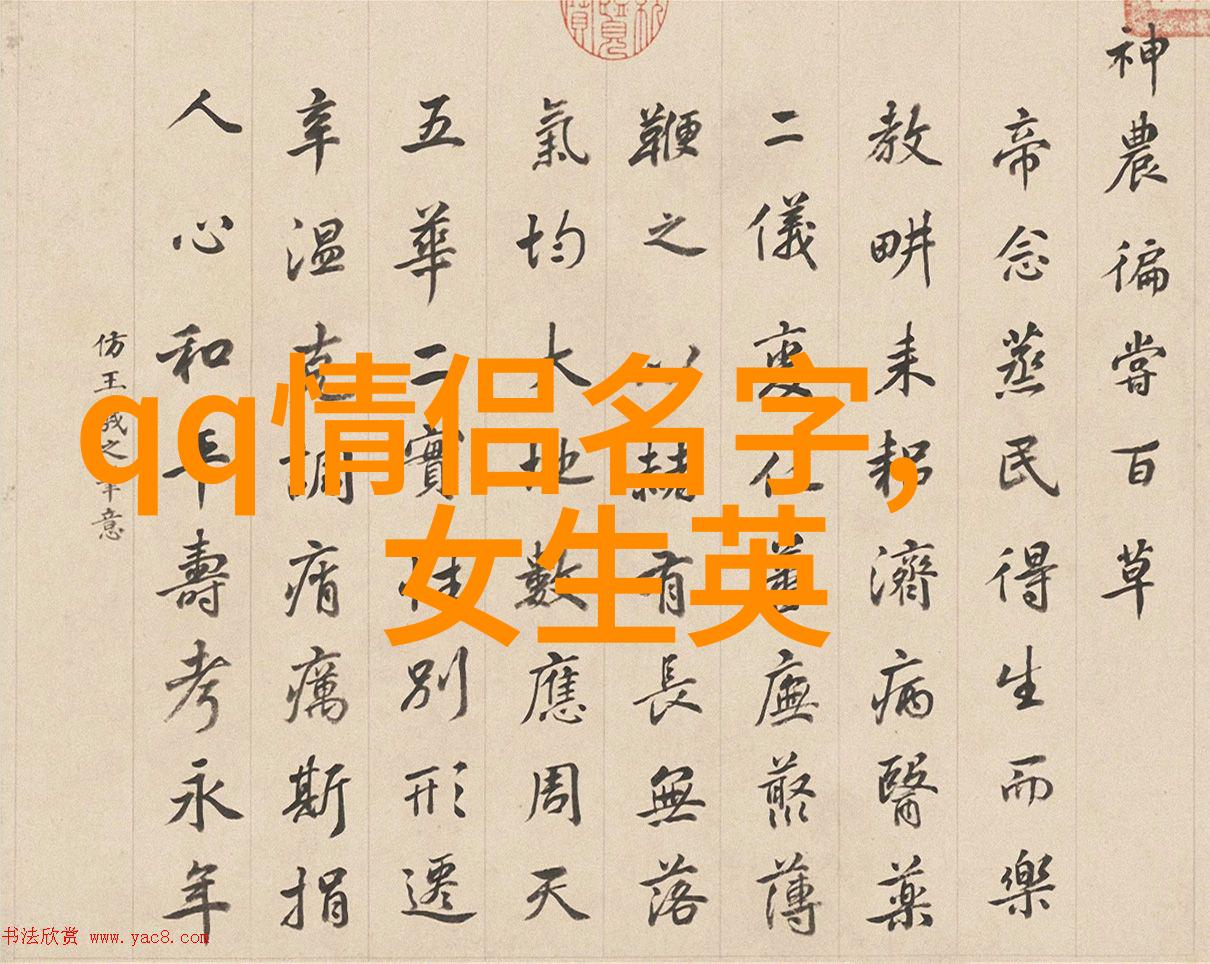 神農徧嘗百草
帝念蒸民得生而樂
教畊耒耜濟病醫藥
二儀薄
鞭之有長無落
氣均大地數應周天
五華二實性別形遷
辛温克調痟癘斯捐
人心和平壽考永年
仿王羲之筆意
qq情侣名字，
女生英
书法欣赏 www.yac8.com